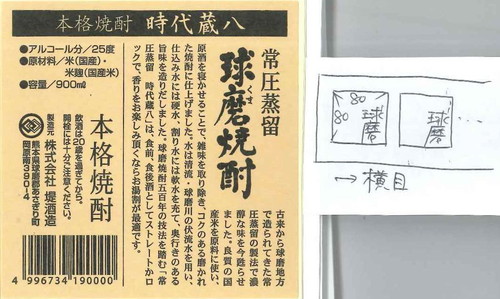 本格焼酎 時代蔵八
●アルコール分／25度
●原材料／米(国産)・
米麹(国産米)
●容量／900㎖
常圧蒸留
球磨焼酎
くま
古来から球磨地方
で造られてきた常
圧蒸留の製法で濃
醇な味を今甦らせ
ました。良質の国
産米を原料に使い、
原酒を寝かせることで、雑味を取り除き、コクのある磨かれ
た焼酎に仕上げました。水は清流・球磨川の伏流水を用い、
仕込み水には硬水、割り水には軟水を充て、奥行きのある
旨味を造りだしました。球磨焼酎五百年の技法を踏む「常
圧蒸留 時代蔵八」は、食前、食後酒としてストレートかロ
ックで、香りをお楽しみ頂くならお湯割が最適です。
本格焼酎
飲酒は20歳を過ぎてから。
開栓には十分ご注意ください。
製造元 株式会社 堤酒造
熊本県球磨郡あさぎり町
岡原南390-4
4 996734 190000
80
80
球磨
球磨
…
→ 横目